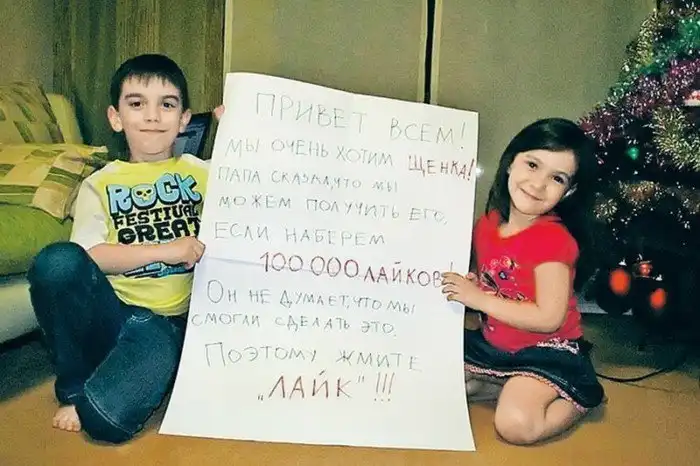 ПРИВЕТ ВСЕМ!
МЫ ОЧЕНЬ ХОТИМ ЩЕНКА!
ПАПА СКАЗАЛ, ЧТО МЫ
МОЖЕМ ПОЛУЧИТЬ ЕГО,
ЕСЛИ НАБЕРЕМ
100 000 ЛАЙКОВ!
ОН НЕ ДУМАЕТ, ЧТО МЫ
СМОГЛИ СДЕЛАТЬ ЭТО.
ПОЭТОМУ ЖМИТЕ
„ЛАЙК"!!!
ROCK
FESTIVAL
GREAT